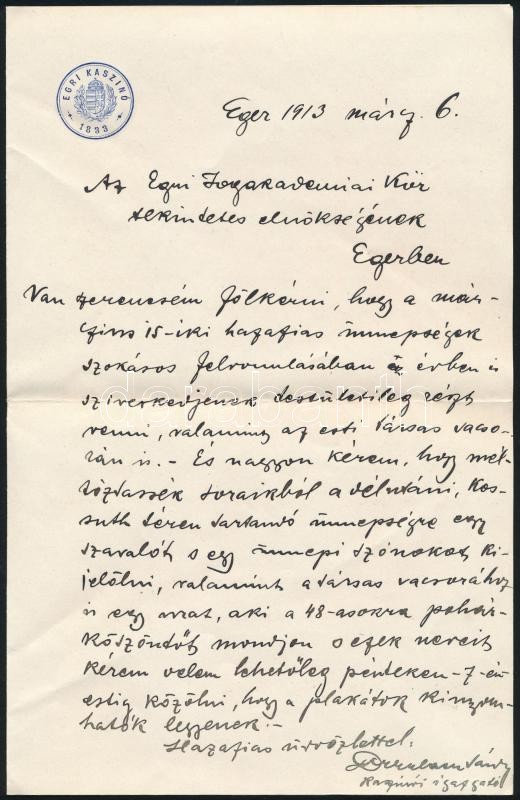 EGRI KASZINÓ
1833
Eger 1913 márcz. 6.
Az Egri Jogakademiai Kör
tekintetes elnökségének
Egerben
Van szerencsém fölkérni, hogy a már-
czius 15-iki hazafias ünnepségek
szokásos felvonulásában ez évben is
sziveskedjenek testületileg részt
venni, valamint az esti társas vacso-
rán is. - És nagyon kérem, hogy mél-
tóztassék soraikból a délutáni, Kos-
suth téren tartandó ünnepségre egy
szavalót s egy ünnepi szónokot ki-
jelölni, valamint a társas vacsorához
is egy urat, aki a 48-asokra pohár-
köszöntőt mondjon s ezek neveit
kérem velem lehetőleg pénteken - 7-én
estig közölni, hogy a plakátok kinyom-
hatók legyenek. -
Hazafias üdvözlettel:
Kaszinói igazgató